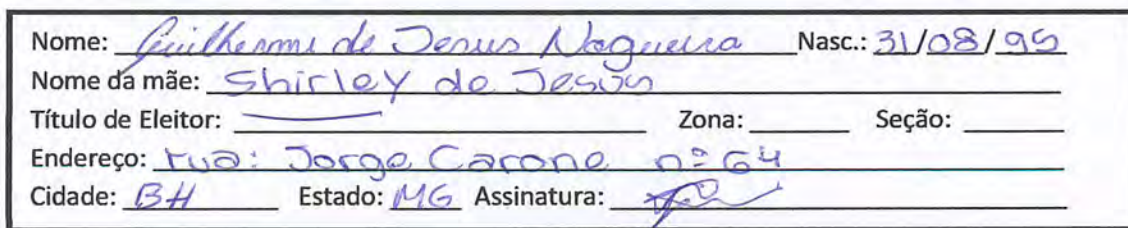 Nome: Guilherme de Jesus Nogueira Nasc.: 31/08/95
Nome da mãe: Shirley de Jesus
Título de Eleitor: Zona: Seção:
Endereço: rua: Jorge Carone nº 64
Cidade: BH Estado: MG Assinatura: